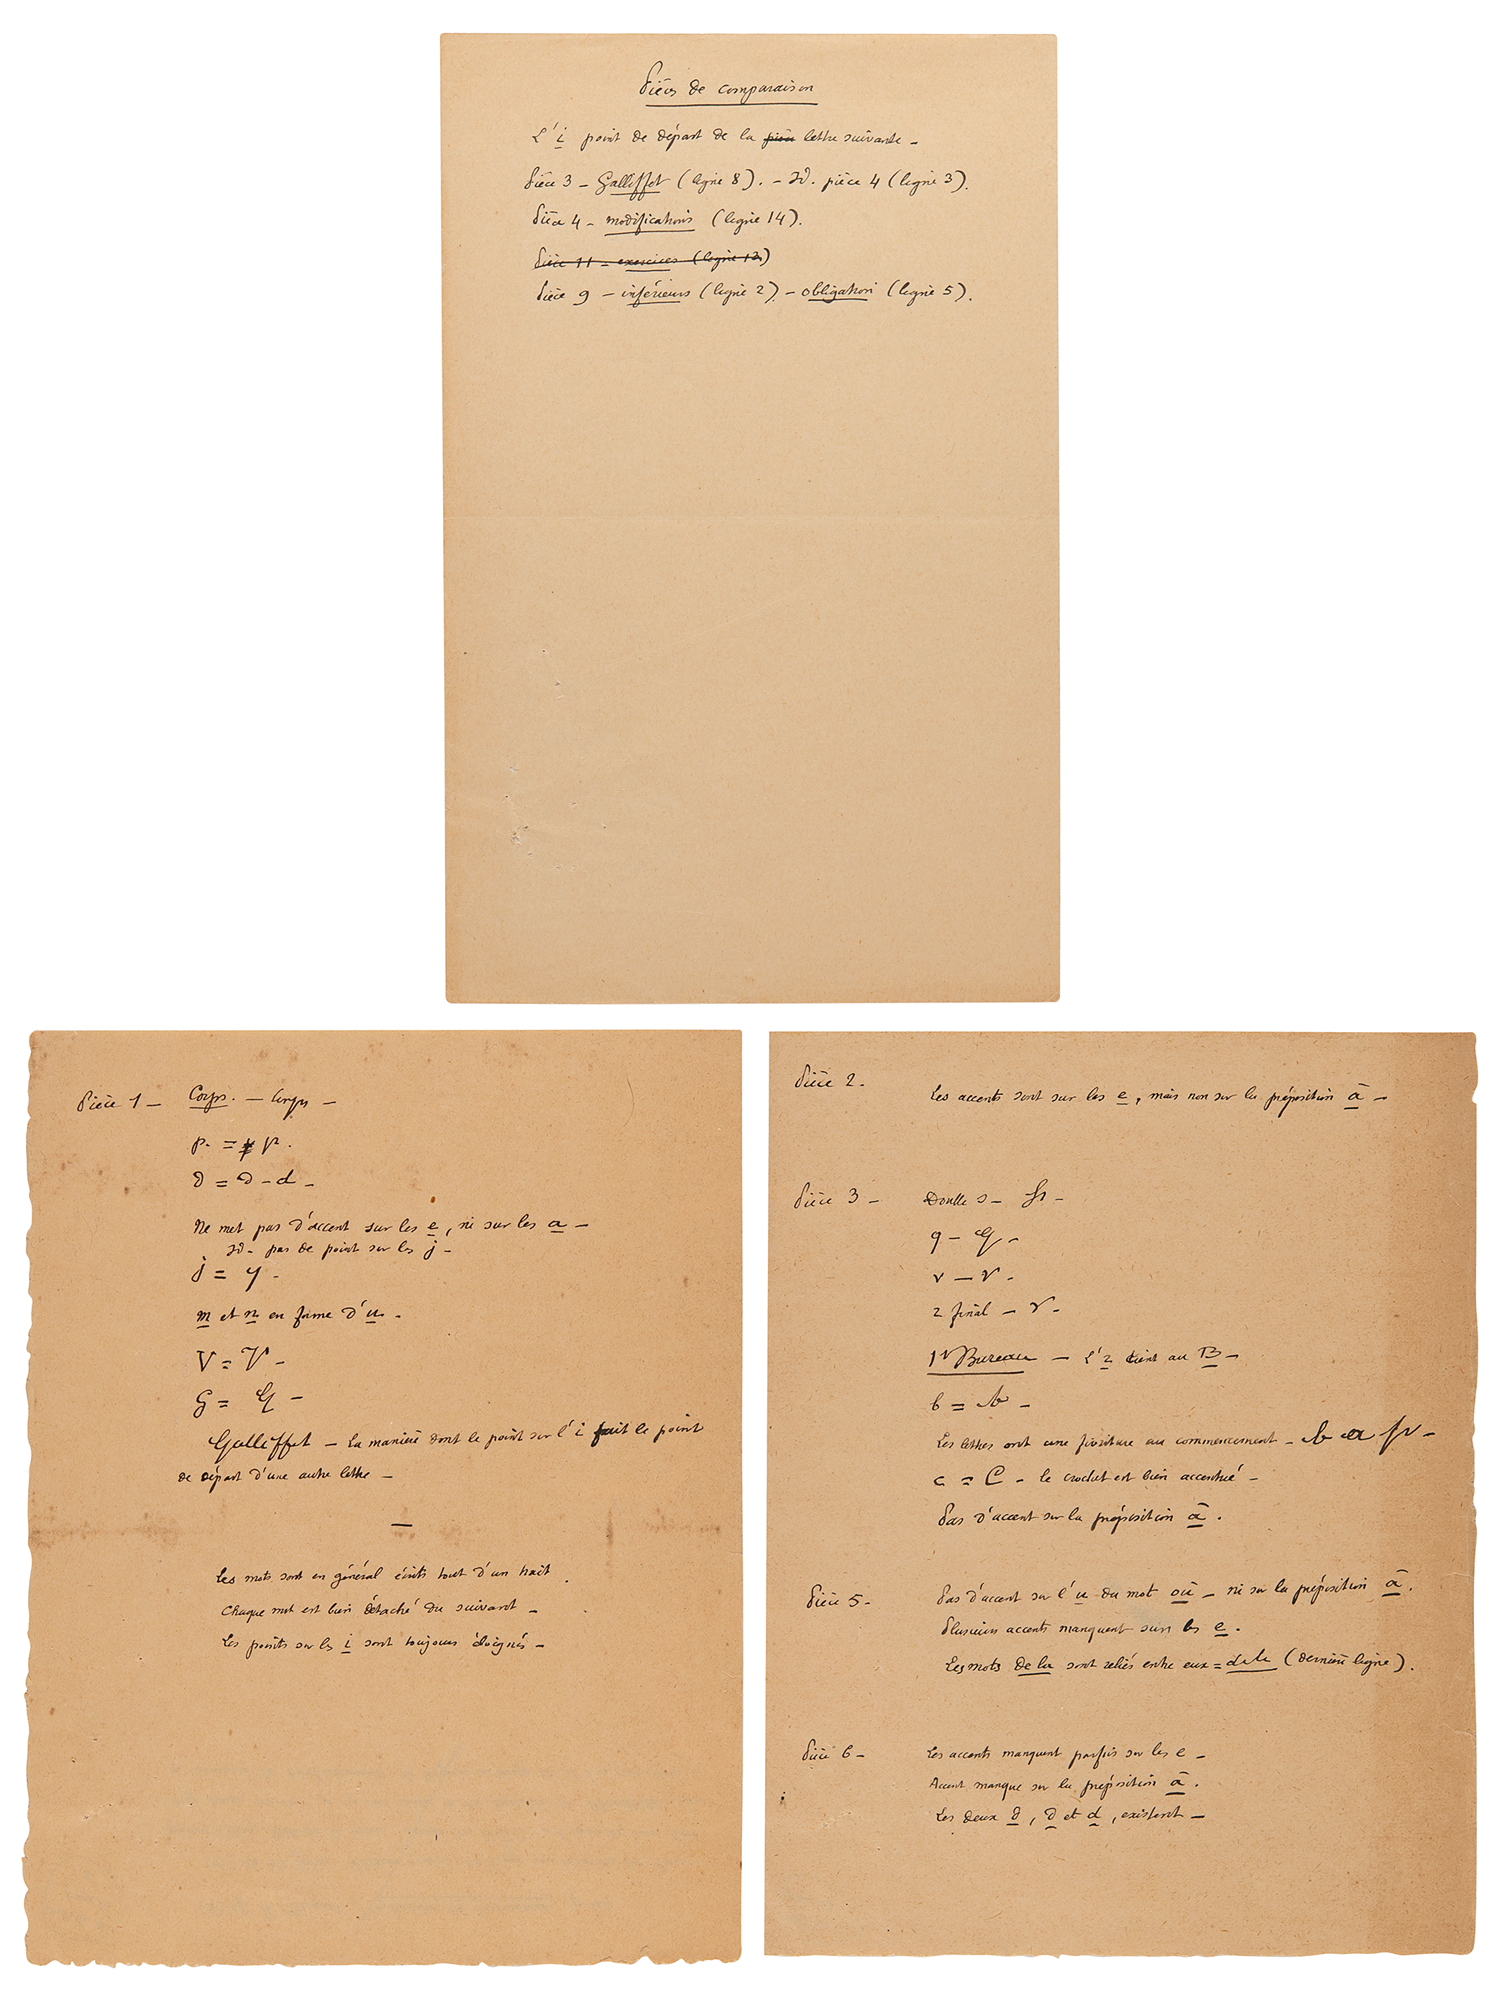 Pièces de comparaison
L'i point de départ de la pièce lettre suivante –
Pièce 3 – Galliffet (ligne 8). – Id. pièce 4 (ligne 3).
Pièce 4 – modifications (ligne 14).
Pièce 11 – exercices (ligne 12)
Pièce 9 – inférieurs (ligne 2) – obligation (ligne 5).
Pièce 1 – Corps. – Corps –
p. = p.
d = d – d –
Ne met pas d'accent sur les e, ni sur les a –
Id – pas de point sur les j –
j = j –
m et n en forme d'u. –
V = V –
G = G –
Galliffet – La manière dont le point sur l'i fait le point
de départ d'une autre lettre –
–
Les mots sont en général écrits tout d'un trait.
Chaque mot est bien détaché du suivant –
Les points sur les i sont toujours éloignés –
Pièce 2. Les accents sont sur les e, mais non sur la préposition a –
Pièce 3 – Double s – fs –
q – q –
v – v –
r final – r –
1r Bureau – L'r tient au B –
b = b –
Les lettres ont une fioriture au commencement – b a p –
c = C – le crochet est bien accentué –
Pas d'accent sur la préposition a.
Pièce 5 – Pas d'accent sur l'u du mot ou – ni sur la préposition a.
Plusieurs accents manquent sur les e.
Les mots de la sont reliés entre eux = dela (dernière ligne).
Pièce 6 – Les accents manquent parfois sur les e –
Accent manque sur la préposition a.
Les deux d, d et d, existent –